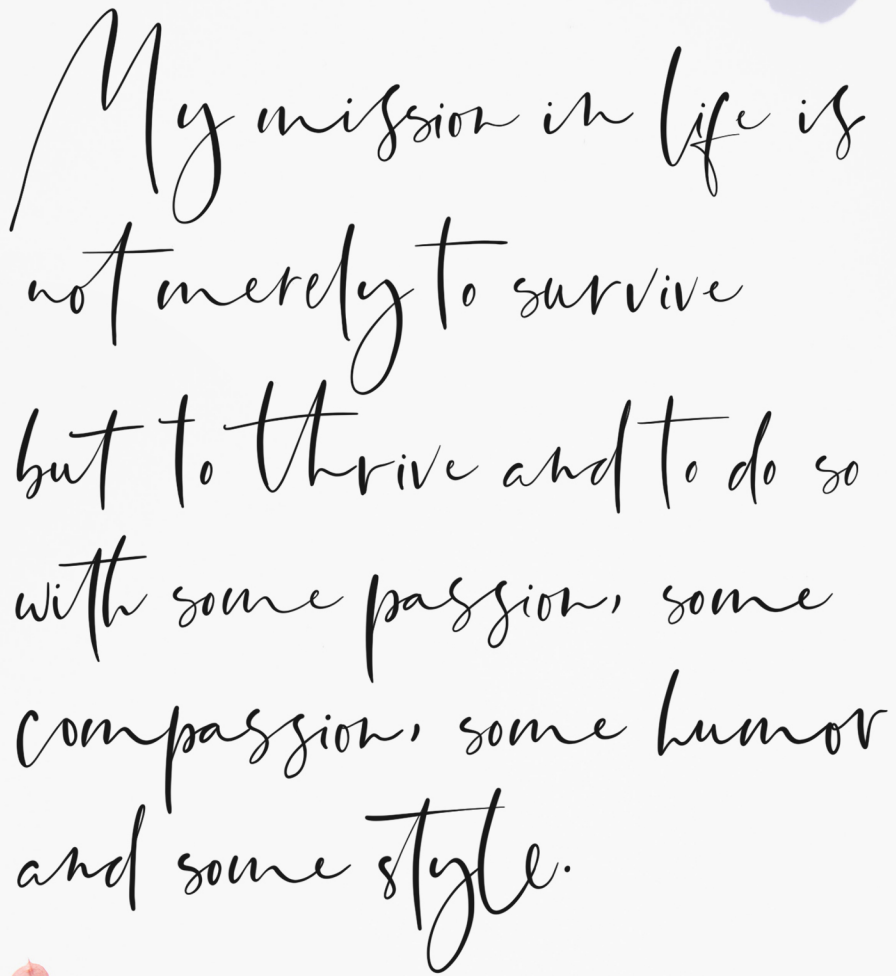 My mission in life is
not merely to survive
but to thrive and to do so
with some passion, some
compassion, some humor
and some style.